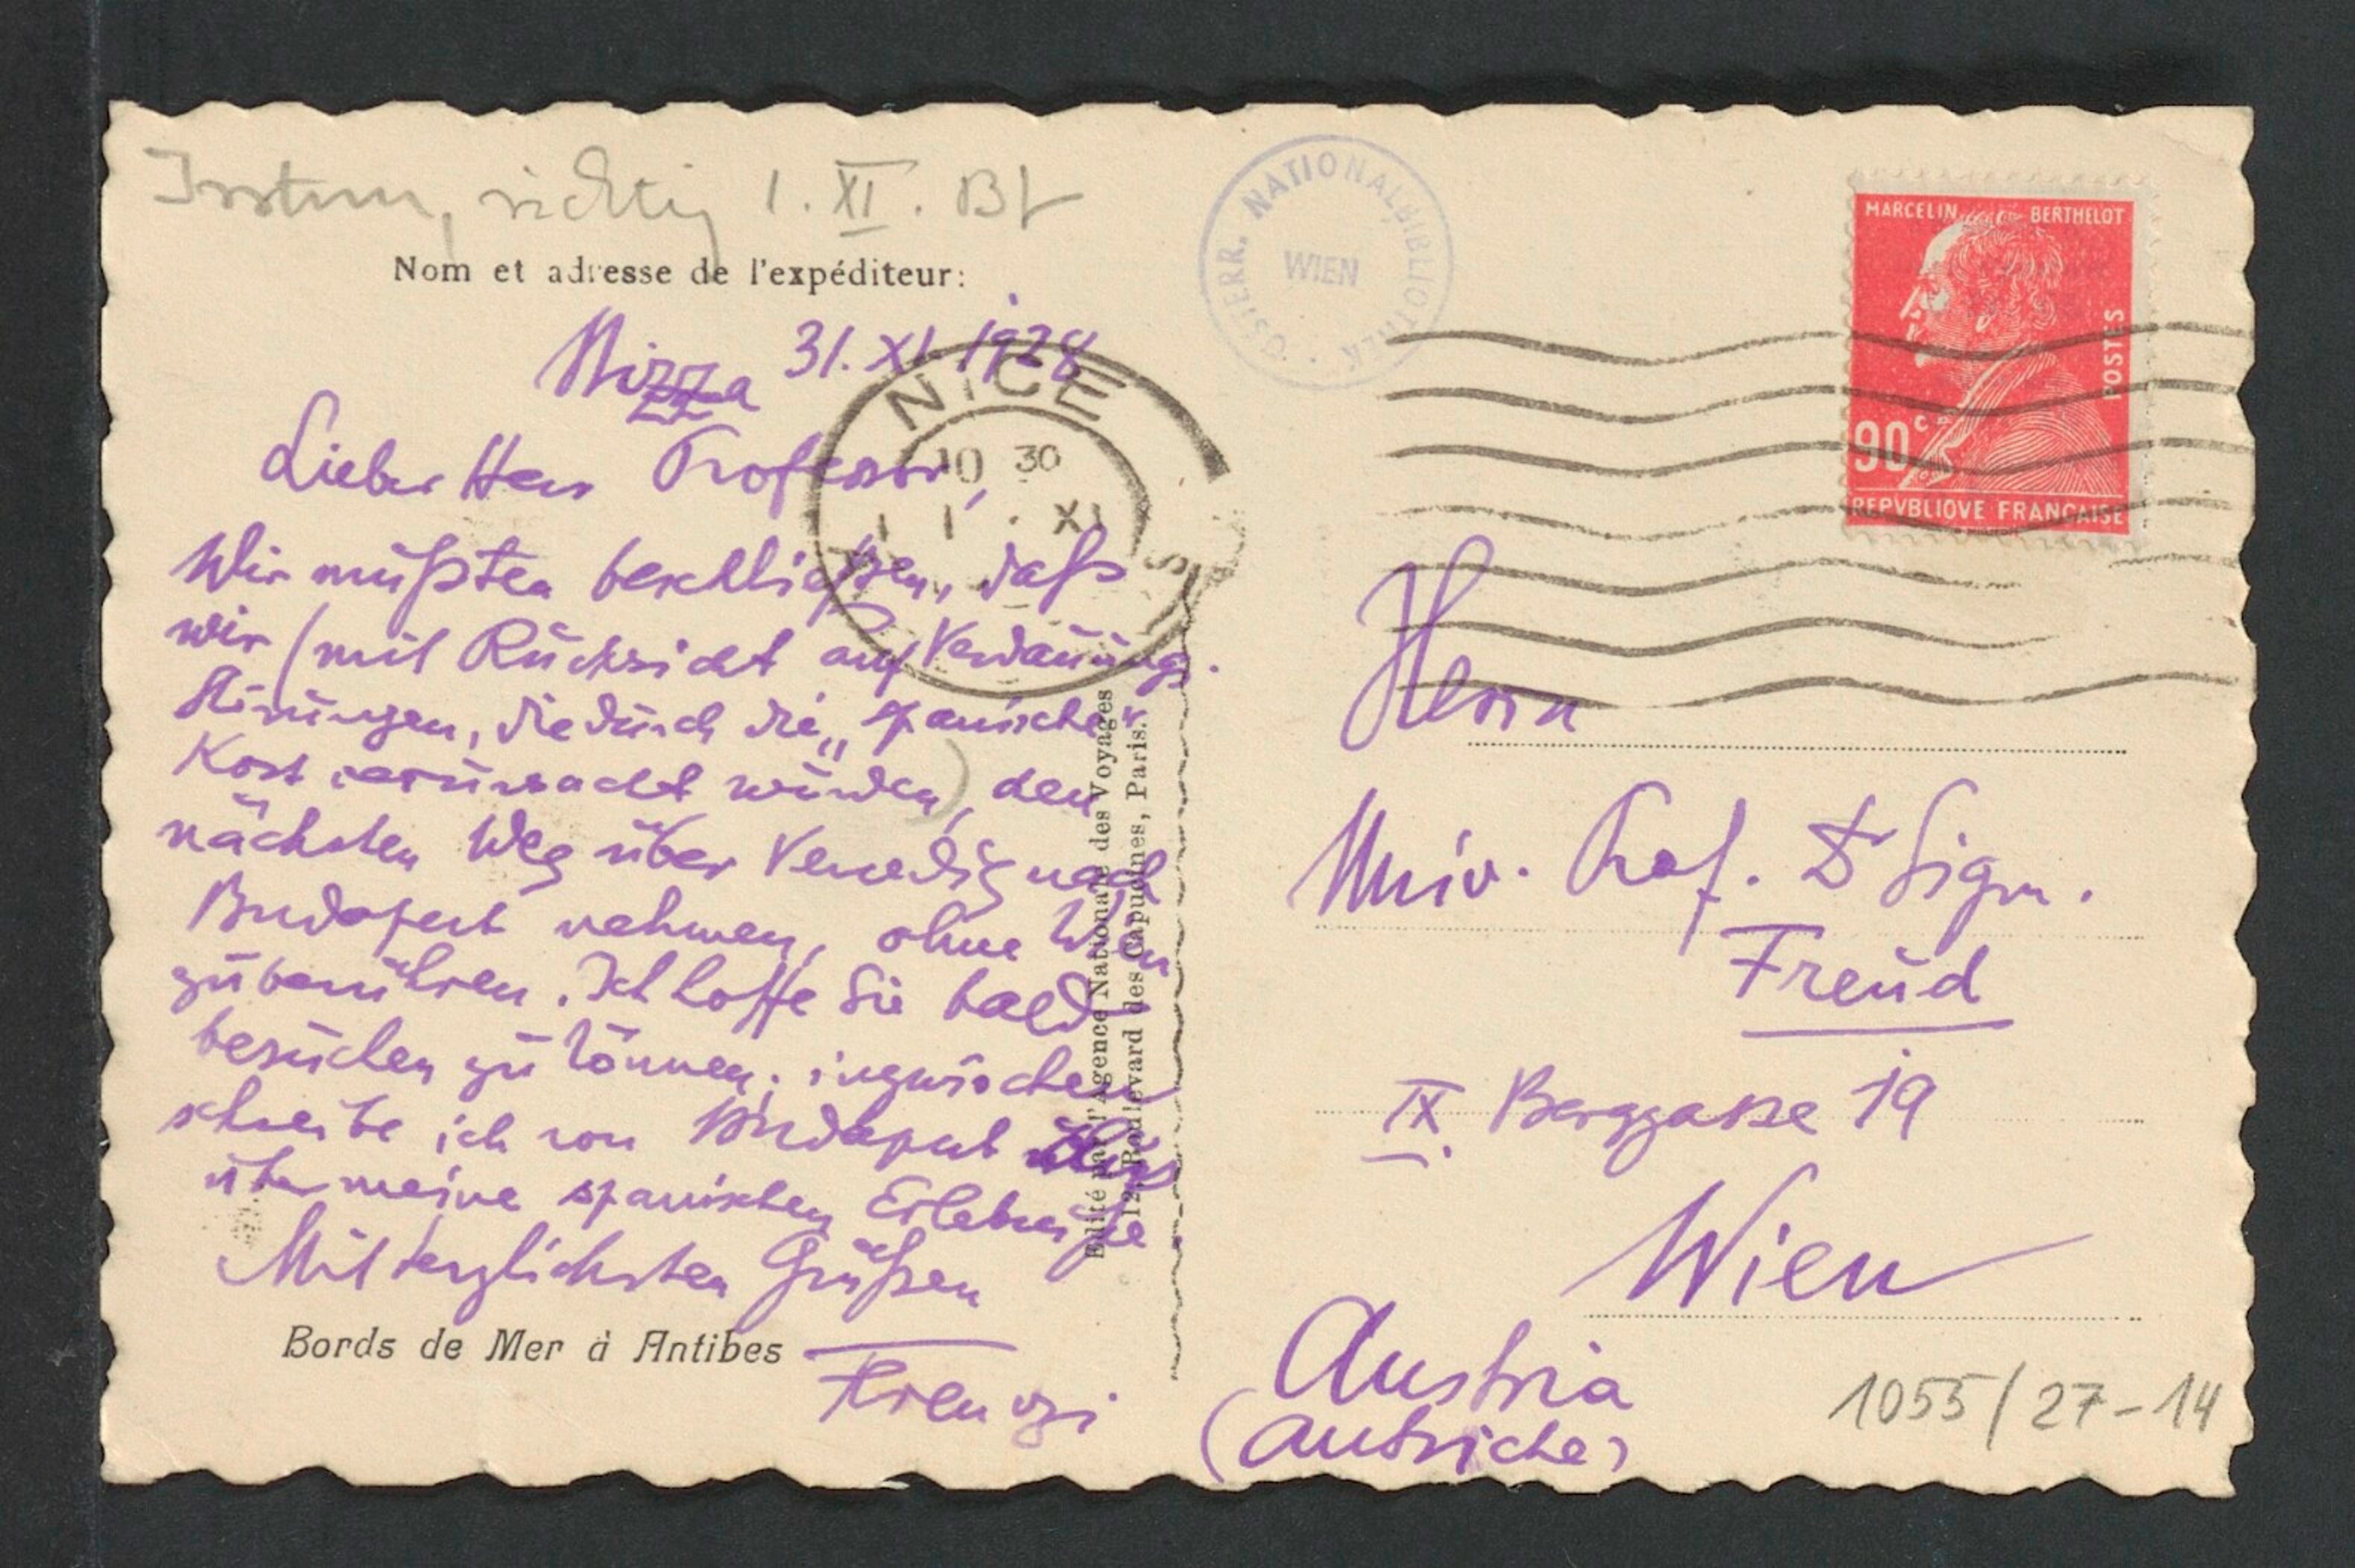 Irrtum, richtig 1. XI. Bf
Nom et adresse de l'expéditeur:
Nizza 31. XI. 1928
Lieber Herr Professor,
Wir mußten beschließen, daß
wir (mit Rücksicht auf Verdauungs-
störungen, die durch die „spanische“
Kost verursacht wurden), den
nächsten Weg über Venedig nach
Budapest nehmen, ohne Wien
zu berühren. Ich hoffe Sie bald
besuchen zu können; inzwischen
schreibe ich von Budapest
über meine spanischen Erlebnisse
Mit herzlichsten Grüßen
Ferenczi
Bords de Mer à Antibes
Edité par l'Agence Nationale des Voyages
12, Boulevard des Capucines, Paris.
NICE
10 30
1 · XI
ÖSTERR. NATIONALBIBLIOTHEK
WIEN
MARCELIN BERTHELOT
POSTES
90c
REPVBLIQVE FRANCAISE
Herrn
Univ. Prof. Dr Sigm.
Freud
IX. Berggasse 19
Wien
Austria
(Autriche)
1055/27-14